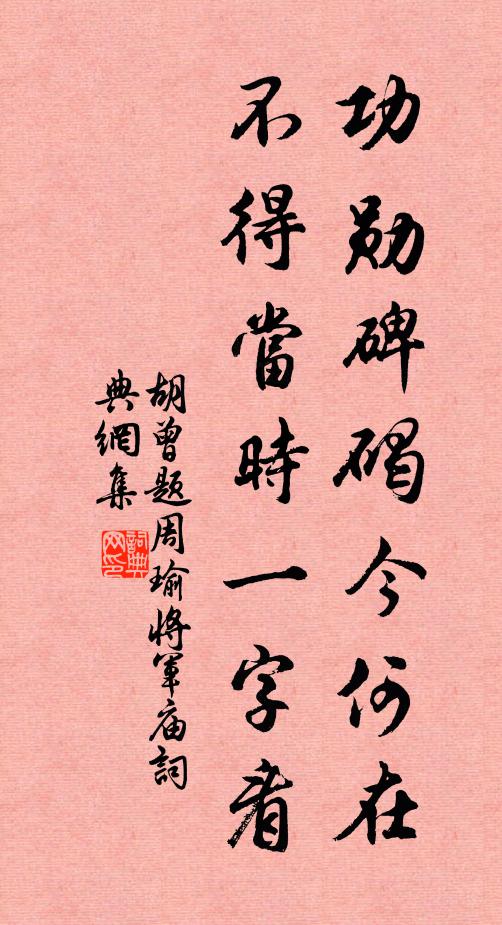 功勋碑碣今何在
不得當時一字看
胡曾题周瑜将軍庙詞
典網集
詞典
网印